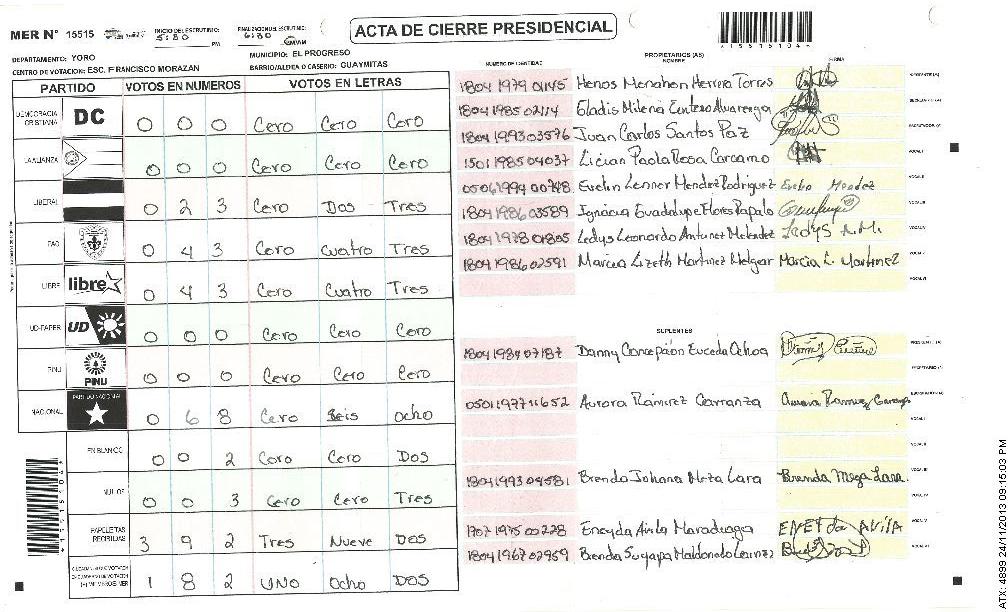 MER N° 15515
INICIO DEL ESCRUTINIO: 5:80 PM
FINALIZACION DEL ESCRUTINIO: 6:80
ACTA DE CIERRE PRESIDENCIAL
15515104
DEPARTAMENTO: YORO
MUNICIPIO: EL PROGRESO
CENTRO DE VOTACION: ESC. FRANCISCO MORAZAN
BARRIO/ALDEA O CASERIO: GUAYMITAS
PARTIDO VOTOS EN NUMEROS VOTOS EN LETRAS
DEMOCRACIA CRISTIANA DC 0 0 0 Cero Cero Cero
LA ALIANZA 0 0 0 Cero Cero Cero
LIBERAL 0 2 3 Cero Dos Tres
PAC 0 4 3 Cero Cuatro Tres
LIBRE libre 0 4 3 Cero Cuatro Tres
UD-FAPER UD 0 0 0 Cero Cero Cero
PINU PINU 0 0 0 Cero Cero Cero
NACIONAL PARTIDO NACIONAL 0 6 8 Cero Seis Ocho
EN BLANCO 0 0 2 Cero Cero Dos
NULOS 0 0 3 Cero Cero Tres
PAPELETAS RECIBIDAS 3 9 2 Tres Nueve Dos
1 8 2 Uno Ocho Dos
NUMERO DE IDENTIDAD PROPIETARIOS (AS) NOMBRE FIRMA
1804 1979 01145 Herrera Torres
1804 1985 02114 Gladis Milena Centeno Alvarenga
1804 1993 03576 Juan Carlos Santos Paz
1501 1985 04037 Lician Paola Rosa Carcamo
0506 1994 00748 Evelin Lenner Mendez Rodriguez Evelin Mendez
1804 1986 03589 Ignacia Guadalupe Flores Papalo
1804 1978 01805 Ledys Leonardo Antunez Melendez Ledys A.M.
1804 1986 02591 Marcia Lizeth Martinez Melgar Marcia L. Martinez
SUPLENTES
1804 1984 07187 Danny Concepción Euceda Ochoa
0501 1977 11652 Aurora Ramirez Carranza Aurora Ramirez Carranza
1804 1993 04581 Brenda Johana Meza Lara Brenda Meza Lara.
1707 1975 00228 Eneyda Avila Maradiaga ENEYda AVILA
1804 1967 02959 Brenda Suyapa Maldonado
ATX: 4899 24/11/2013 09:15:03 PM